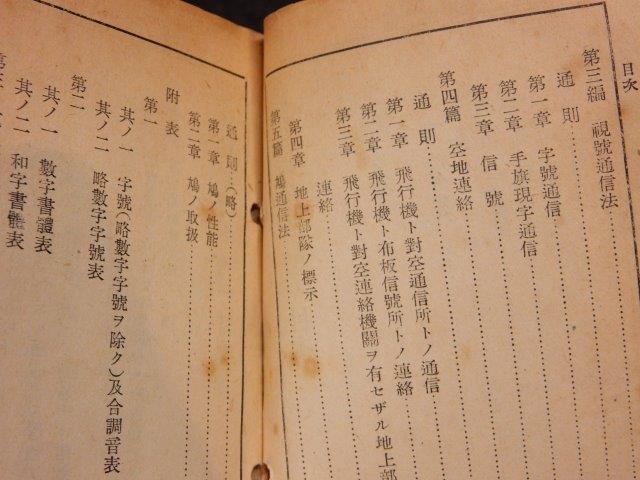 目次
第三編　視號通信法
通　則
第一章　字號通信
第二章　手旗現字通信
第三章　信　號
第四篇　空地連絡
通　則
第一章　飛行機ト對空通信所トノ通信
第二章　飛行機ト布板信號所トノ連絡
第三章　飛行機ト對空連絡機關ヲ有セザル地上部
連絡
第四章　地上部隊ノ標示
第五篇　鳩通信法
通　則（略）
第一章　鳩ノ性能
第二章　鳩ノ取扱
附　表
第一
其ノ一　字號（略數字字號ヲ除ク）及合調音表
其ノ二　略數字字號表
第二
其ノ一　數字書體表
其ノ二　和字書體表